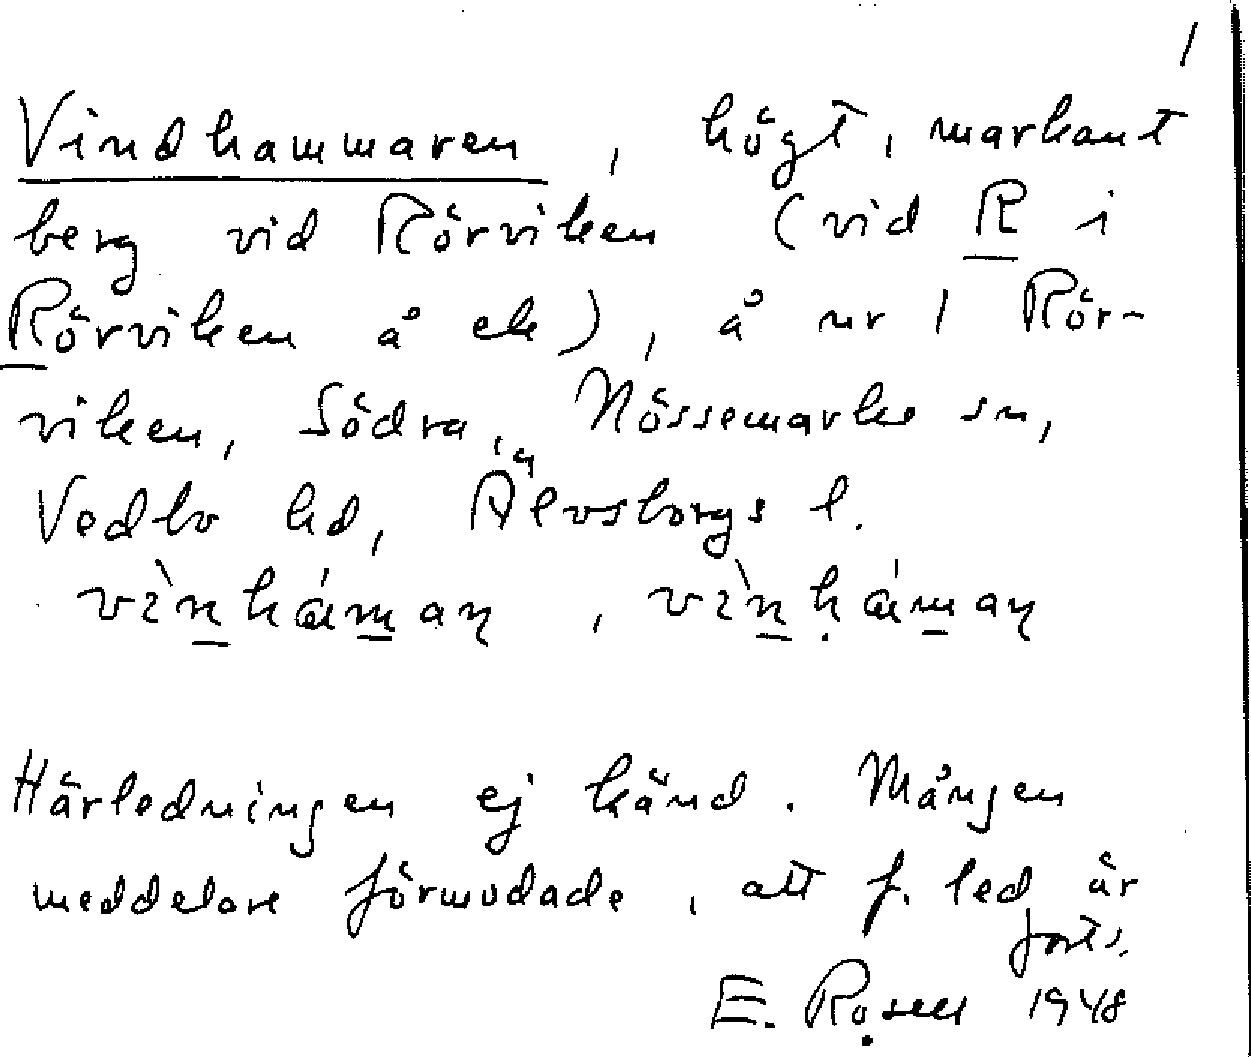 1
Vindhammaren, högt, markant
berg vid Rörviken (vid R i
Rörviken å ek), å nr 1 Rör-
viken, Södra, Nössemarks sn,
Vedbo hd, Älvsborgs l.
Härledningen ej känd. Mången
meddelare förmodade, att f. led är
forts.
E. Rosell 1948